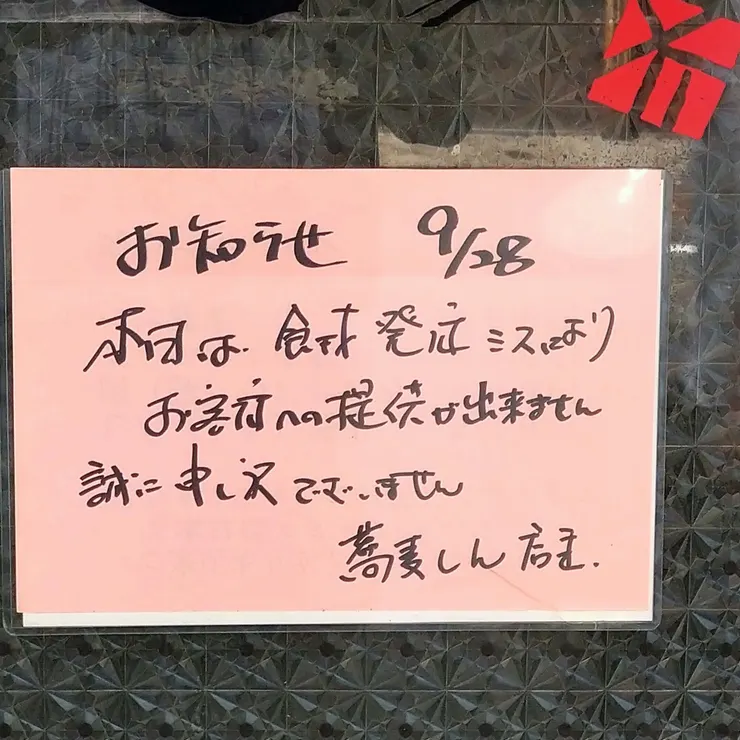 お知らせ 9/28
本日は、食材発注ミスにより
お客様への提供が出来ません
誠に申し訳ございません
蕎麦しん 店主.